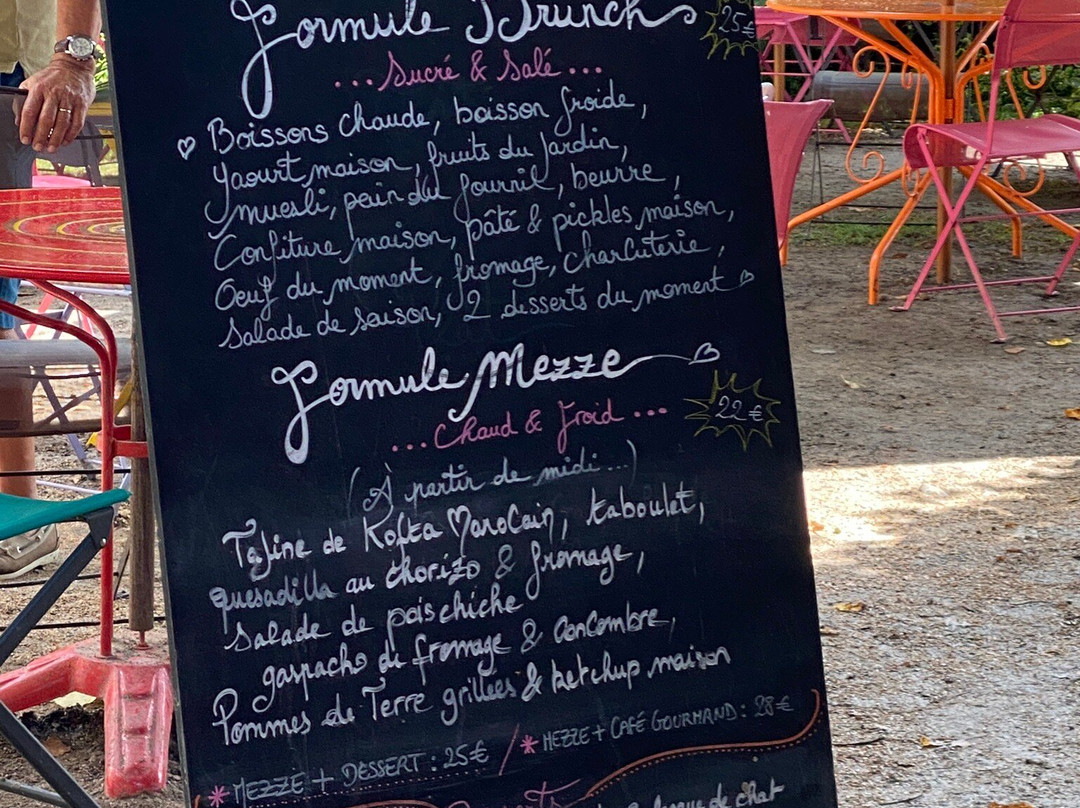 Formule Brunch 25€
...Sucré & Salé...
Boissons chaude, boisson froide,
Yaourt maison, fruits du jardin,
Muesli, pain du fournil, beurre,
Confiture maison, pâté & pickles maison,
Oeuf du moment, fromage, charcuterie,
Salade de saison, 2 desserts du moment
Formule Mezze
22€
...Chaud & Froid...
(À partir de midi...)
Tajine de Kofta Marocain, taboulet,
quesadilla au chorizo & fromage,
Salade de pois chiche
gaspacho de fromage & concombre,
Pommes de Terre grillées & ketchup maison
* MEZZE + DESSERT : 25€ / * MEZZE + CAFÉ GOURMAND : 28€
langue de chat